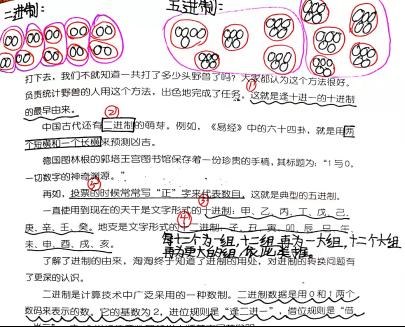 二进制:
五进制:
打下去，我们不就知道一共打了多少头野兽了吗？大家都认为这个方法很好。
负责统计野兽的人用这个方法，出色地完成了任务，这就是逢十进一的十进制
的最早由来。
②
中国古代还有二进制的萌芽。例如，《易经》中的六十四卦，就是用两
个短横和一个长横来预测凶吉。
德国图林根的郭塔王宫图书馆保存着一份珍贵的手稿，其标题为：“1与0，
一切数字的神奇渊源。”
⑤
再如，投票的时候常常写“正”字来代表数目，这就是典型的五进制。
一直使用到现在的天干是文字形式的十进制：甲、乙、丙、丁、戊、己、
庚、辛、壬、癸。地支是文字形式的十二进制：子、丑、寅、卯、辰、巳、午、
未、申、酉、戌、亥。
每十二个为一组，十二组再为一大组，十二个大组
再为更大的组，依此类推。
了解了进制的由来，淘淘终于知道了进制的用处，对进制的转换问题有
了更深的认识。
二进制是计算技术中广泛采用的一种数制。二进制数据是用0和1两个
数码来表示的数。它的基数为2，进位规则是“逢二进一”，借位规则是“借